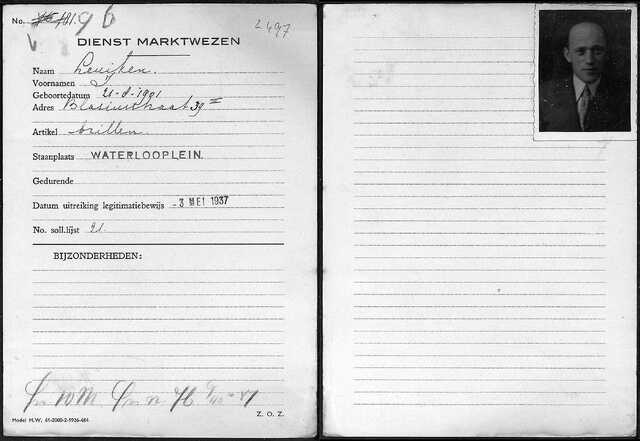 No. 181. 96
L 497
DIENST MARKTWEZEN
Naam Leuijken.
Voornamen J
Geboortedatum 21-8-1901
Adres Blasiusstraat 39 II
Artikel brillen.
Staanplaats WATERLOOPLEIN.
Gedurende
Datum uitreiking legitimatiebewijs - 3 MEI 1937
No. soll.lijst 91.
BIJZONDERHEDEN:
Z. O. Z.
Model M.W. 61-2000-2-1936-684